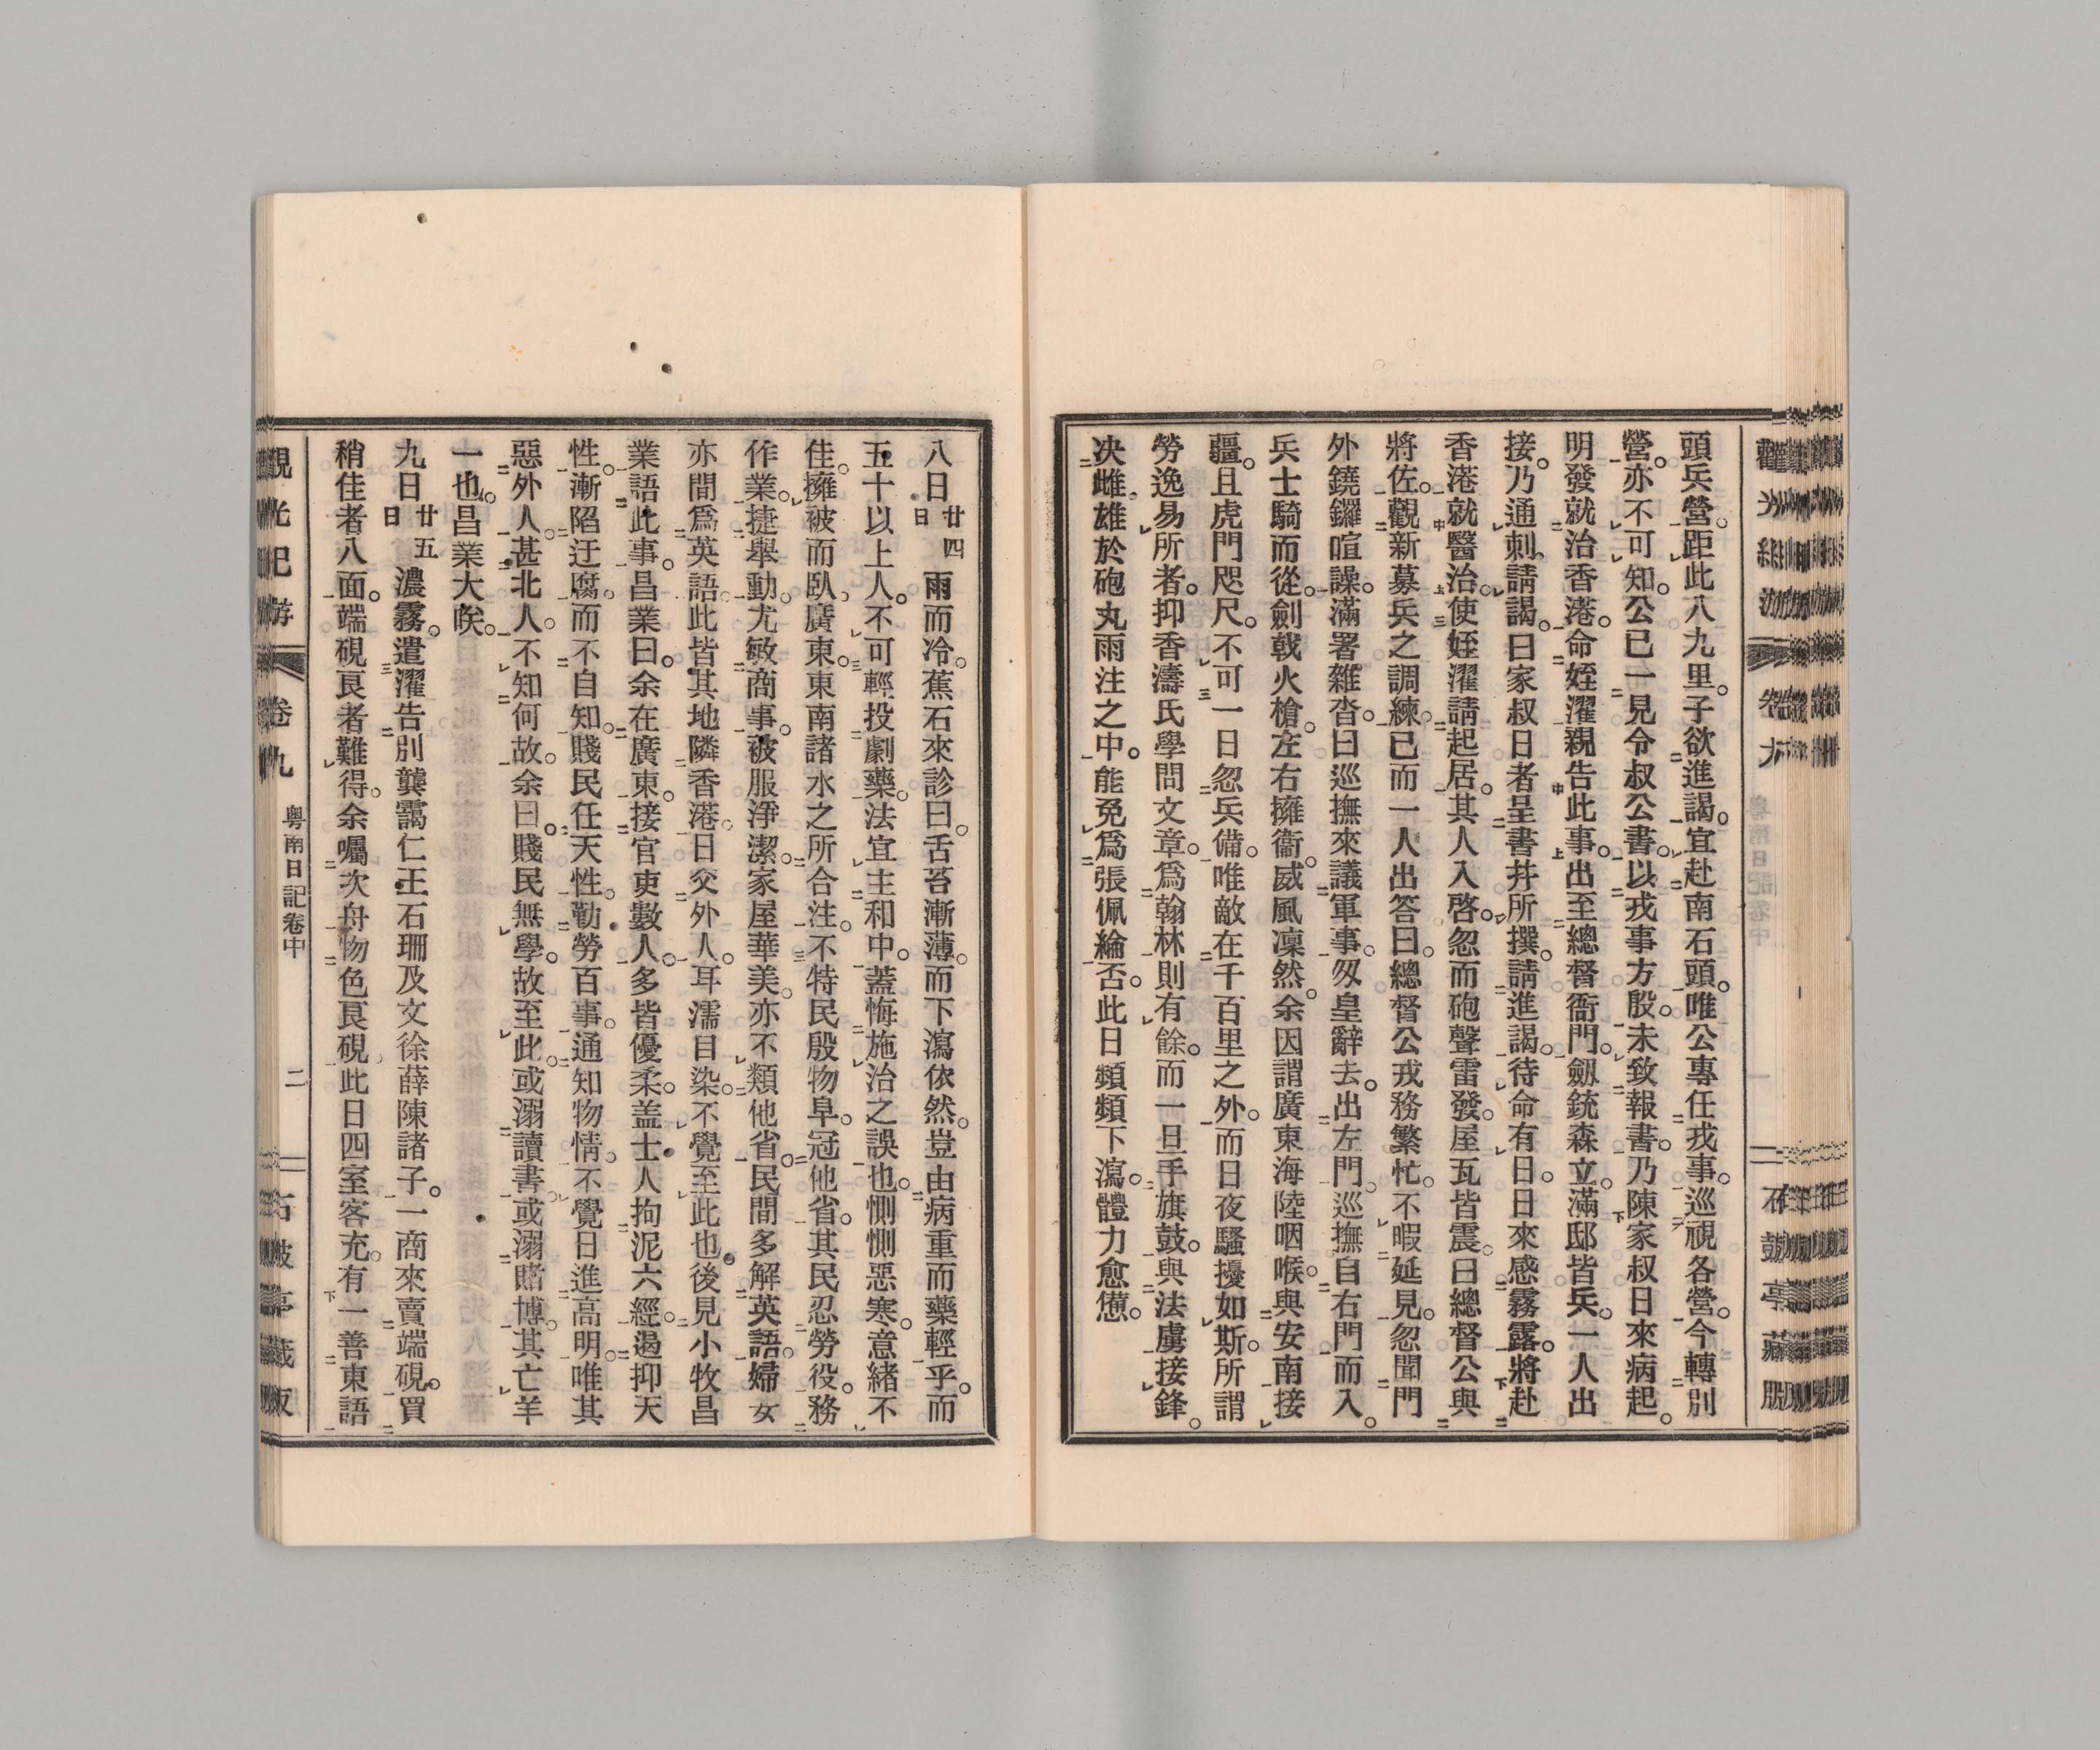 頭兵營。距此八九里。子欲進謁。宜赴南石頭。唯公專任戎事。巡視各營。今轉別
營。亦不可知。公已一見令叔公書。以戎事方殷。未致報書。乃陳家叔日來病起。
明發就治香港。命姪濯親告此事。出至總督衙門。劔銃森立。滿邸皆兵。一人出
接。乃通刺。請謁。曰家叔日者呈書幷所撰。請進謁。待命有日。日來感霧露。將赴
香港就醫治。使姪濯請起居。其人入啓。忽而砲聲雷發。屋瓦皆震。曰總督公與
將佐。觀新募兵之調練。已而一人出答曰。總督公戎務繁忙。不暇延見。忽聞門
外鐃鑼喧譟。滿署雜沓。曰巡撫來議軍事。匆皇辭去。出左門。巡撫自右門而入。
兵士騎而從。劍戟火槍。左右擁衞。威風凜然。余因謂廣東海陸咽喉。與安南接
疆。且虎門咫尺。不可一日忽兵備。唯敵在千百里之外。而日夜騷擾如斯。所謂
勞逸易所者。抑香濤氏學問文章。爲翰林則有餘。而一旦手旗鼓。與法虜接鋒。
决雌雄於砲丸雨注之中。能免爲張佩綸否。此日頻頻下瀉。體力愈憊。
八日廿四日雨而冷。蕉石來診曰。舌苔漸薄。而下瀉依然。豈由病重而藥輕乎。而
五十以上人。不可輕投劇藥。法宜主和中。蓋悔施治之誤也。惻惻惡寒。意緒不
佳。擁被而臥。廣東。東南諸水之所合注。不特民殷物阜。冠他省。其民忍勞役。務
作業。捷舉動。尤敏商事。被服淨潔。家屋華美。亦不類他省。民間多解英語。婦女
亦間爲英語。此皆其地隣香港。日交外人。耳濡目染。不覺至此也。後見小牧昌
業語此事。昌業曰。余在廣東。接官吏數人。多皆優柔。盖士人拘泥六經。遏抑天
性。漸陷迂腐。而不自知。賤民任天性。勤勞百事。通知物情。不覺日進高明。唯其
惡外人。甚北人。不知何故。余曰。賤民無學。故至此。或溺讀書。或溺賭博。其亡羊
一也。昌業大唉。
九日廿五日濃霧。遣濯告別龔靄仁王石珊及文徐薛陳諸子。一商來賣端硯。買
稍佳者八面。端硯良者難得。余囑次舟物色良硯。此日四室客充。有一善東語
觀光紀游
卷九
粤南日記卷中
二
石鼓亭藏版